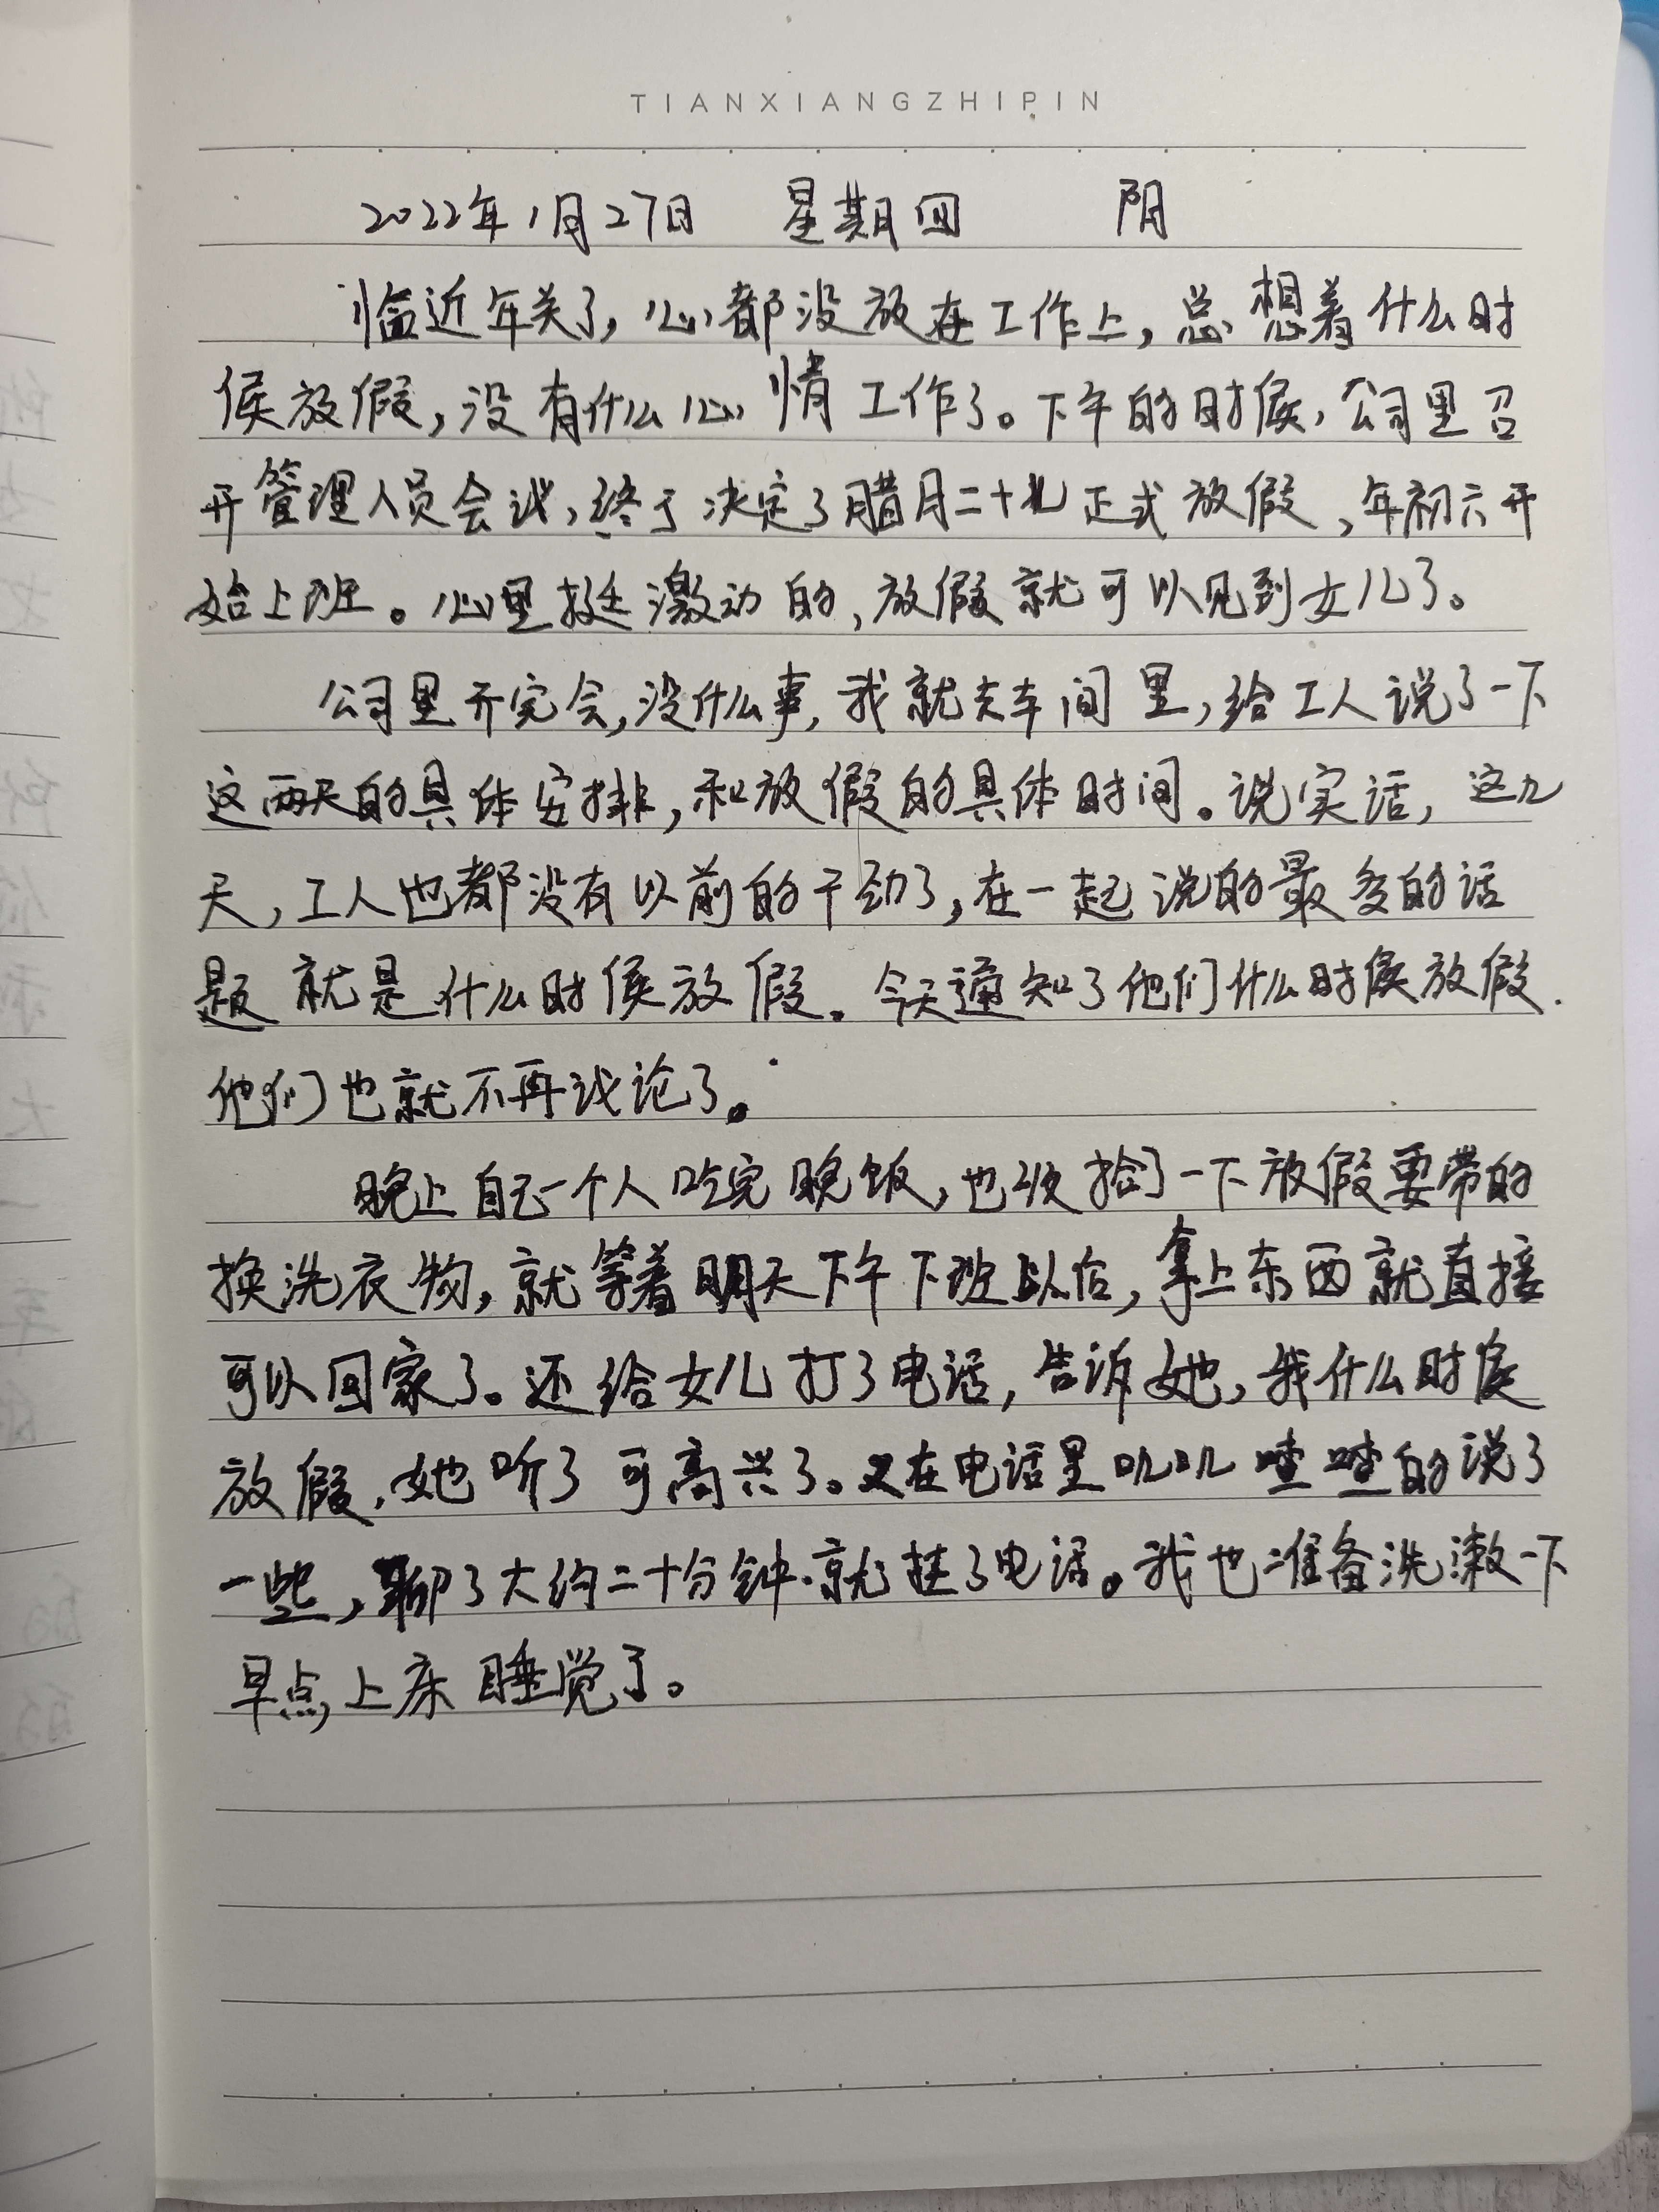 TIANXIANGZHIPIN
2022年1月27日 星期四 阴
临近年关了,心都没放在工作上,总想着什么时
候放假,没有什么心情工作了。下午的时候,公司里召
开管理人员会议,终于决定了腊月二十九正式放假,年初六开
始上班。心里挺激动的,放假就可以见到女儿了。
公司里开完会,没什么事,我就去车间里,给工人说了一下
这两天的具体安排,和放假的具体时间。说实话,这几
天,工人也都没有以前的干劲了,在一起说的最多的话
题就是什么时候放假。今天通知了他们什么时候放假.
他们也就不再议论了。
晚上自己一个人吃完晚饭,也收拾了一下放假要带的
换洗衣物,就等着明天下午下班以后,拿上东西就直接
可以回家了。还给女儿打了电话,告诉她,我什么时候
放假,她听了可高兴了。又在电话里叽叽喳喳的说了
一些,聊了大约二十分钟.就挂了电话。我也准备洗漱一下
早点上床睡觉了。